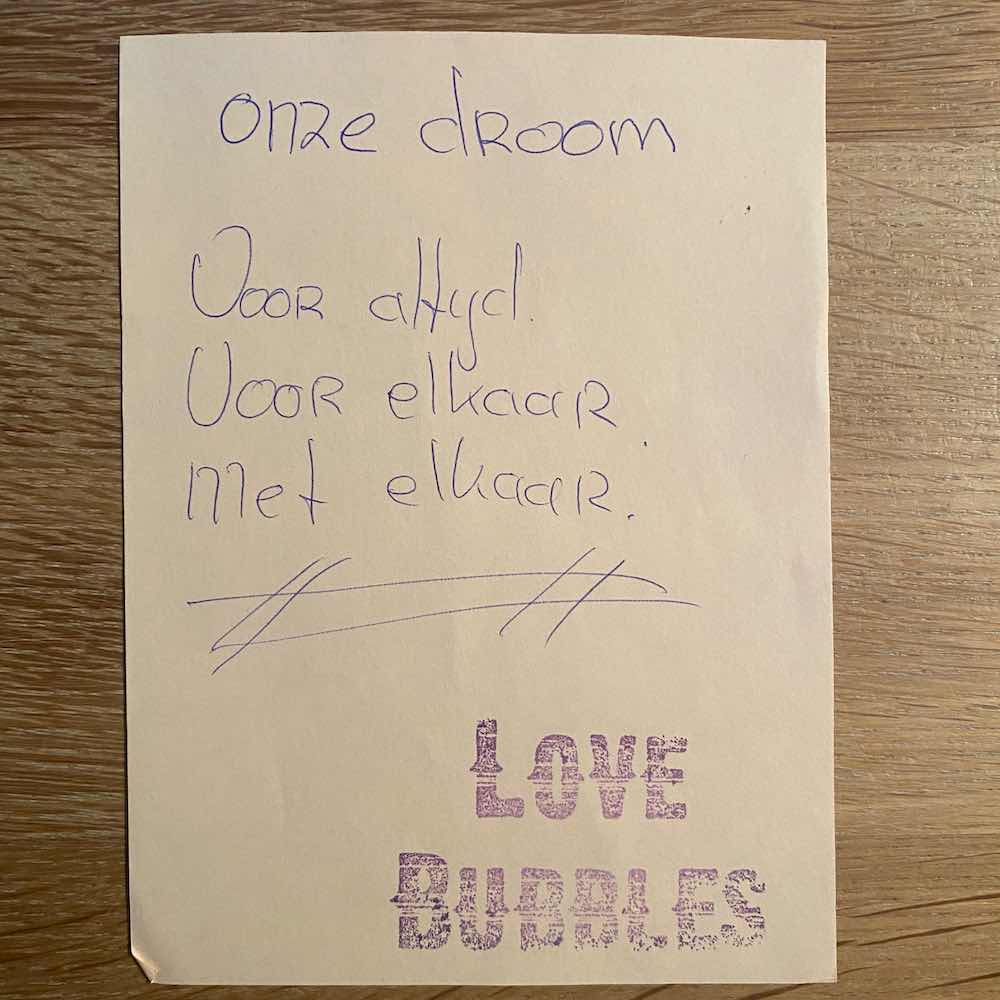 onze droom
Voor altyd.
Voor elkaar
Met elkaar.
LOVE
BUBBLES